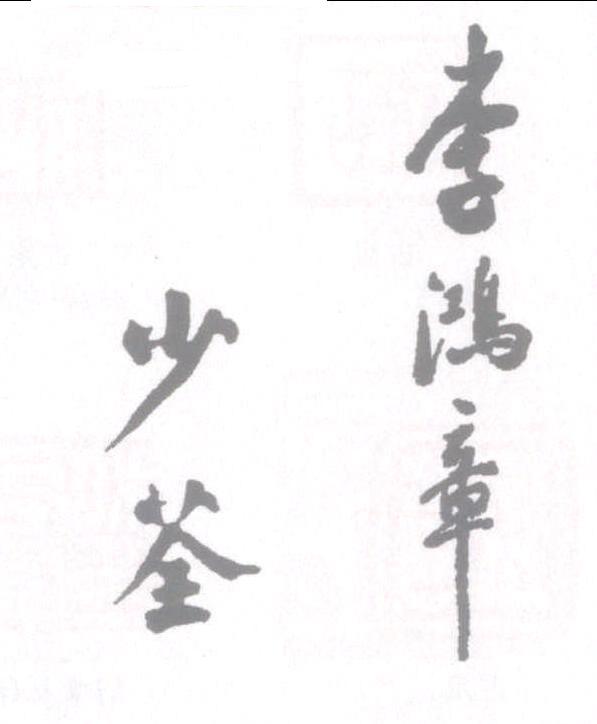 李鴻章
少荃